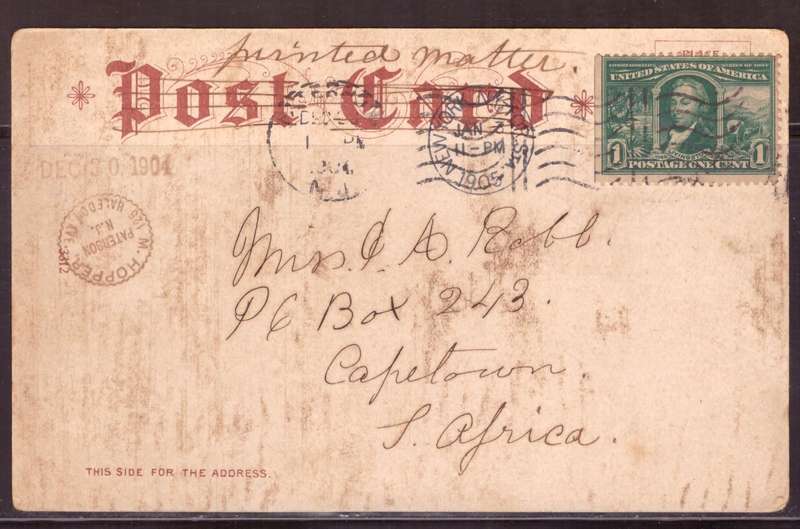 printed matter.
Post Card
PLACE
UNITED STATES OF AMERICA
1 POSTAGE ONE CENT 1
NEW YORK
JAN 7
11-PM
1905
1904
M HOPPER
PATERSON
N.J.
Mrs. J. A. Robb.
PO Box 243.
Capetown.
S. Africa.
THIS SIDE FOR THE ADDRESS.